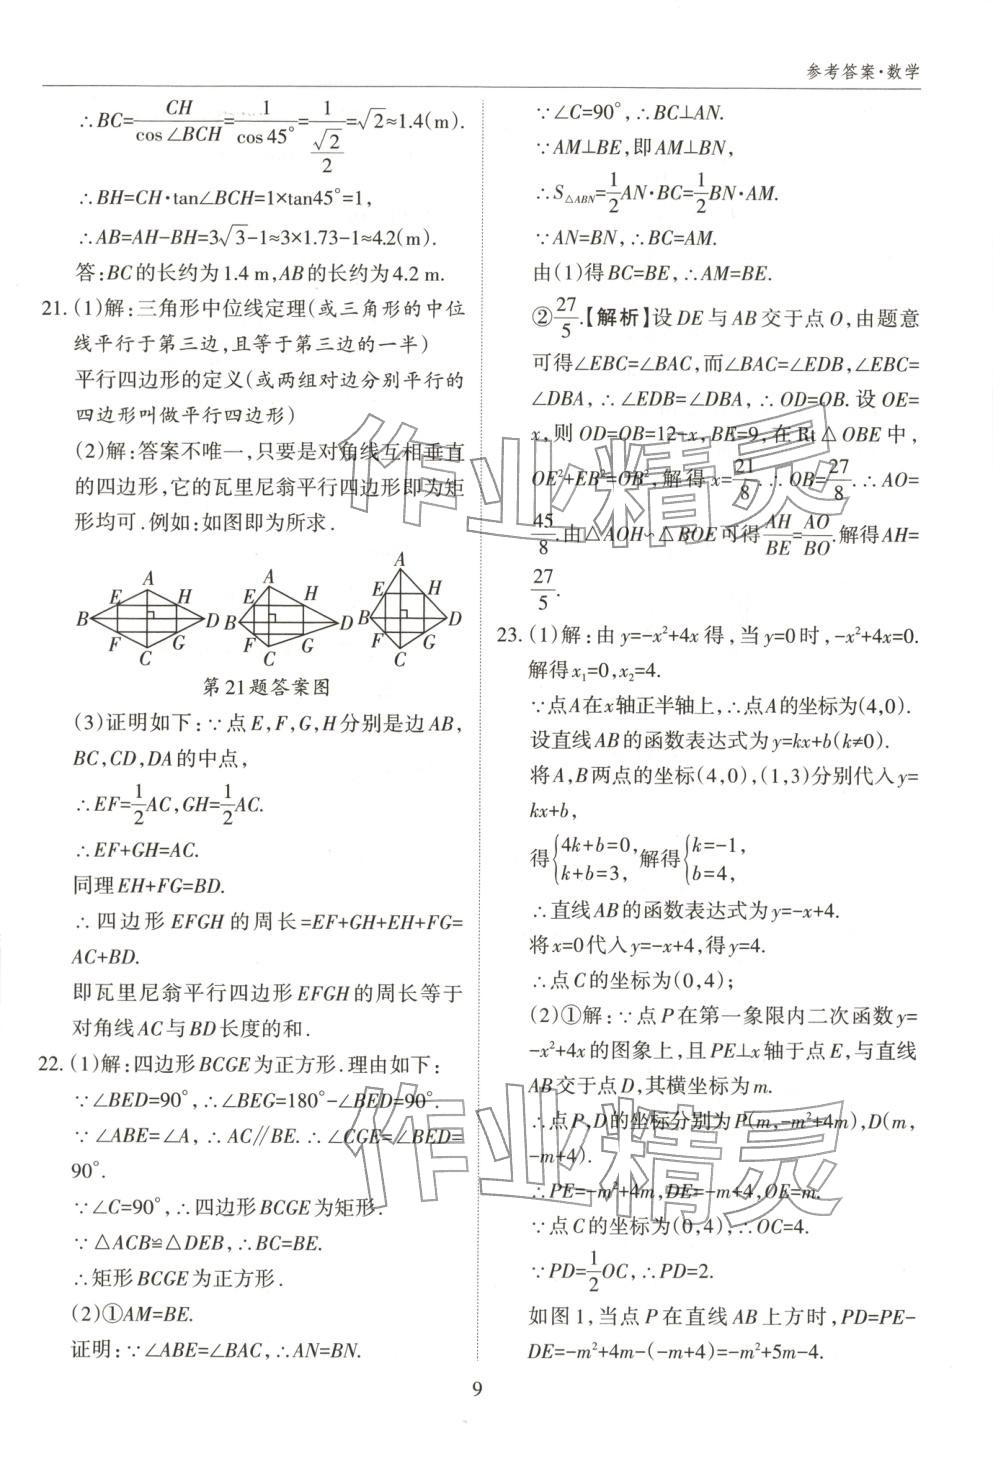 参考答案·数学
∴BC=CH/cos∠BCH=1/cos45°=1/(√2/2)=√2≈1.4(m).
∴BH=CH·tan∠BCH=1×tan45°=1,
∴AB=AH-BH=3√3-1≈3×1.73-1≈4.2(m).
答:BC的长约为1.4 m,AB的长约为4.2 m.
21.(1)解:三角形中位线定理(或三角形的中位
线平行于第三边,且等于第三边的一半)
平行四边形的定义(或两组对边分别平行的
四边形叫做平行四边形)
(2)解:答案不唯一,只要是对角线互相垂直
的四边形,它的瓦里尼翁平行四边形即为矩
形均可.例如:如图即为所求.
A E H B D F G C
A E H B D F G C
A E H B D F G C
第21题答案图
(3)证明如下:∵点E,F,G,H分别是边AB,
BC,CD,DA的中点,
∴EF=1/2AC,GH=1/2AC.
∴EF+GH=AC.
同理EH+FG=BD.
∴四边形EFGH的周长=EF+GH+EH+FG=
AC+BD.
即瓦里尼翁平行四边形EFGH的周长等于
对角线AC与BD长度的和.
22.(1)解:四边形BCGE为正方形.理由如下:
∵∠BED=90°,∴∠BEG=180°-∠BED=90°.
∵∠ABE=∠A,∴AC∥BE.∴∠CGE=∠BED=
90°.
∵∠C=90°,∴四边形BCGE为矩形.
∵△ACB≌△DEB,∴BC=BE.
∴矩形BCGE为正方形.
(2)①AM=BE.
证明:∵∠ABE=∠BAC,∴AN=BN.
∵∠C=90°,∴BC⊥AN.
∵AM⊥BE,即AM⊥BN,
∴S△ABN=1/2AN·BC=1/2BN·AM.
∵AN=BN,∴BC=AM.
由(1)得BC=BE,∴AM=BE.
②27/5.【解析】设DE与AB交于点O,由题意
可得∠EBC=∠BAC,而∠BAC=∠EDB,∠EBC=
∠DBA,∴∠EDB=∠DBA,∴OD=OB.设OE=
x,则OD=OB=12-x,BE=9,在Rt△OBE中,
OE²+EB²=OB²,解得x=21/8.∴OB=27/8.∴AO=
45/8.由△AOH∽△BOE可得AH/BE=AO/BO.解得AH=
27/5.
23.(1)解:由y=-x²+4x得,当y=0时,-x²+4x=0.
解得x₁=0,x₂=4.
∵点A在x轴正半轴上,∴点A的坐标为(4,0).
设直线AB的函数表达式为y=kx+b(k≠0).
将A,B两点的坐标(4,0),(1,3)分别代入y=
kx+b,
得{4k+b=0,k+b=3,解得{k=-1,b=4,
∴直线AB的函数表达式为y=-x+4.
将x=0代入y=-x+4,得y=4.
∴点C的坐标为(0,4);
(2)①解:∵点P在第一象限内二次函数y=
-x²+4x的图象上,且PE⊥x轴于点E,与直线
AB交于点D,其横坐标为m.
∴点P,D的坐标分别为P(m,-m²+4m),D(m,
-m+4).
∴PE=-m²+4m,DE=-m+4,OE=m.
∵点C的坐标为(0,4),∴OC=4.
∵PD=1/2OC,∴PD=2.
如图1,当点P在直线AB上方时,PD=PE-
DE=-m²+4m-(-m+4)=-m²+5m-4.
9
作业精灵
作业精灵